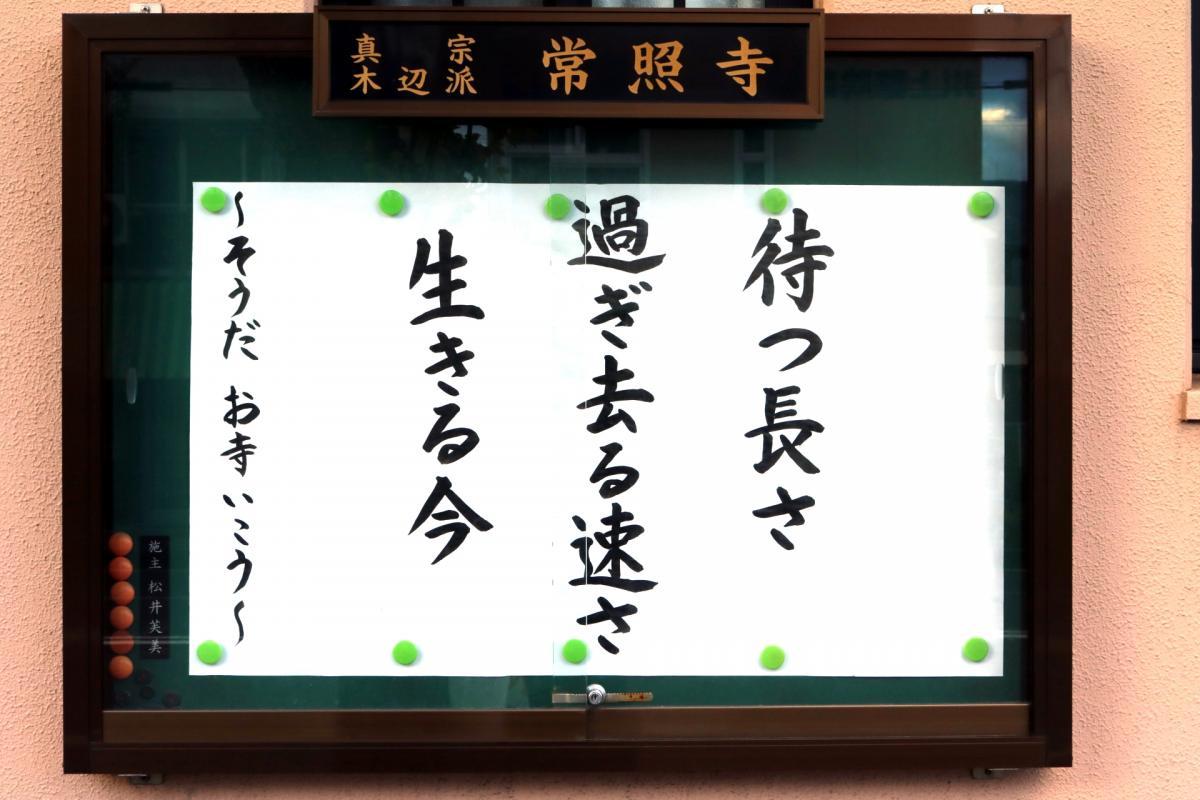 真宗木辺派 常照寺
待つ長さ
過ぎ去る速さ
生きる今
〜そうだ お寺いこう〜
施主 松井芙美